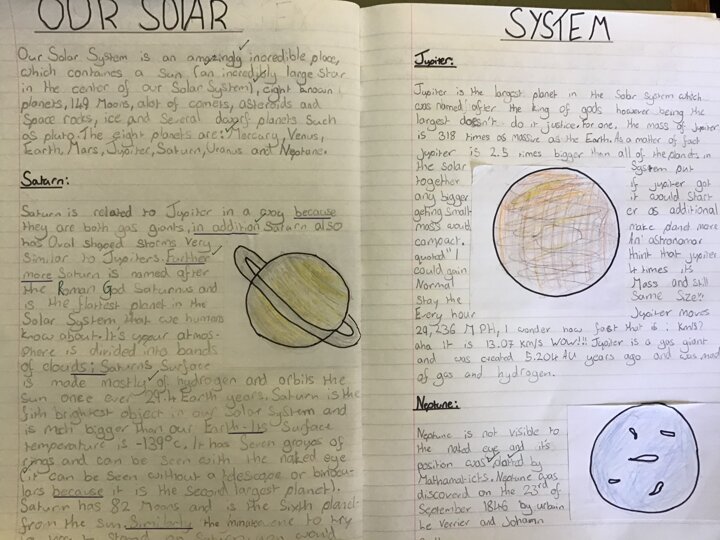 OUR SOLAR
Our Solar System is an amazingly incredible place,
which containes a Sun (an incredibly large star
in the center of our Solar System), eight known
planets, 149 Moons, alot of comets, asteroids and
Space rocks, ice and Several dworf planets Such
as pluto. The eight planets are: Mercury, Venus,
Earth, Mars, Jypiter, Saturn, Uranus and Neptune.
Saturn:
Saturn is related to Jupiter in a way because
they are both gas giants, in addition Saturn also
has Oval shaped storms Very
Similar to Jypiters. Further
more Saturn is named after
the Roman God Saturnus and
is the flattest planet in the
Solar System that we humans
know about. It's upper atmos-
phere is divided into bands
of clouds; Saturns Surface
is made mostly of hydrogen and orbits the
sun once ever 29.4 Earth years. Saturn is the
fith brightest object in our Solar System and
is much bigger than our Earth. It's Surface
temperature is -139°c. It has Seven groups of
rings and can be seen with the naked eye
(it can be Seen without a telescope or binocu-
lars because it is the Second largest planet).
Saturn has 82 Moons and is the Sixth planet
from the sun. Similarly the to try
a Saturn would
SYSTEM
Jypiter:
Jypiter is the largest planet in the Solar system which
was named after the king of gods however being the
largest doesn't do it justice. For one, the mass of Jypiter
is 318 times as massive as the Earth. As a matter of fact
Jypiter is 2.5 times bigger than all of the planets in
the Solar System put
together if jypiter got
any bigger it would Start
geting smalt er as additional
mass would make planet more
compact. An astronomar
quoted "I think that jypiter
could gain 4 times it's
Normal Mass and still
Stay the Same Size".
Every hour Jypiter moves
29,236 MPH, I wonder how fast that is in KM/S?
aha it is 13.07 KM/S WOW!!! Jypiter is a gas giant
and was created 5.204 AU years ago and was mad
of gas and hydrogen.
Neptune:
Neptune is not visible to
the naked eye and it's
position was by
Mathamaticts. Neptune was
discoverd on the 23rd of
September 1846 by urbain
Le Verrier and Johann